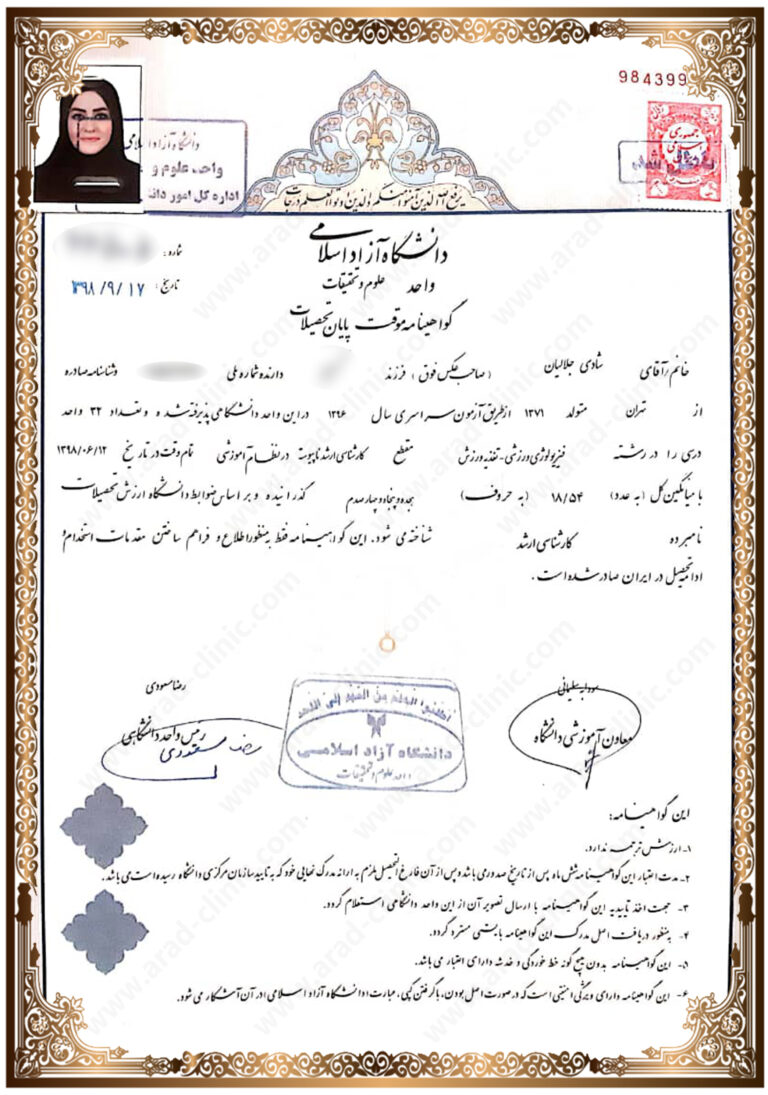 984399
جمهوری
دانشگاه آزاد اسلامی
واحد علوم و
اداره کل امور دانش
یرفع الله الذین آمنوا منکم والذین اوتوا العلم درجات
دانشگاه آزاد اسلامی
واحد علوم و تحقیقات
گواهینامه موقت پایان تحصیلات
شماره:
تاریخ: ۱۳۹۸/۹/۱۷
خانم/آقای شادی جلالیان (صاحب عکس فوق) فرزند دارنده شماره ملی وشناسنامه صادره
از تهران متولد ۱۳۷۱ از طریق آزمون سراسری سال ۱۳۹۶ در این واحد دانشگاهی پذیرفته شد و تعداد ۳۲ واحد
درسی را در رشته فیزیولوژی ورزشی-تغذیه ورزش مقطع کارشناسی ارشد ناپیوسته در نظام آموزشی تمام وقت در تاریخ ۱۳۹۸/۰۶/۱۲
با میانگین کل (به عدد) ۱۸/۵۴ (به حروف) هجده و پنجاه و چهار صدم گذرانیده و بر اساس ضوابط دانشگاه ارزش تحصیلات
نامبرده کارشناسی ارشد شناخته می شود. این گواهینامه فقط به منظور اطلاع و فراهم ساختن مقدمات استخدام و
ادامه تحصیل در ایران صادر شده است.
سودابه سلیمانی
معاون آموزشی دانشگاه
اطلبوا العلم من المهد إلی اللحد
دانشگاه آزاد اسلامی
واحد علوم و تحقیقات
رضا مسعودی
رئیس واحد دانشگاهی
این گواهینامه:
۱- ارزش ترجمه ندارد.
۲- مدت اعتبار این گواهینامه شش ماه پس از تاریخ صدور می باشد و پس از آن فارغ التحصیل ملزم به ارائه مدرک نهایی خود که به تایید سازمان مرکزی دانشگاه رسیده است می باشد.
۳- جهت اخذ تاییدیه این گواهینامه با ارسال تصویر آن از این واحد دانشگاهی استعلام گردد.
۴- بمنظور دریافت اصل مدرک این گواهینامه بایستی مسترد گردد.
۵- این گواهینامه بدون هیچ گونه خط خوردگی و خدشه دارای اعتبار می باشد.
۶- این گواهینامه دارای ویژگی امنیتی است که در صورت اصل بودن، با گرفتن کپی، عبارت دانشگاه آزاد اسلامی در آن آشکار می شود.
www.arad-clinic.com